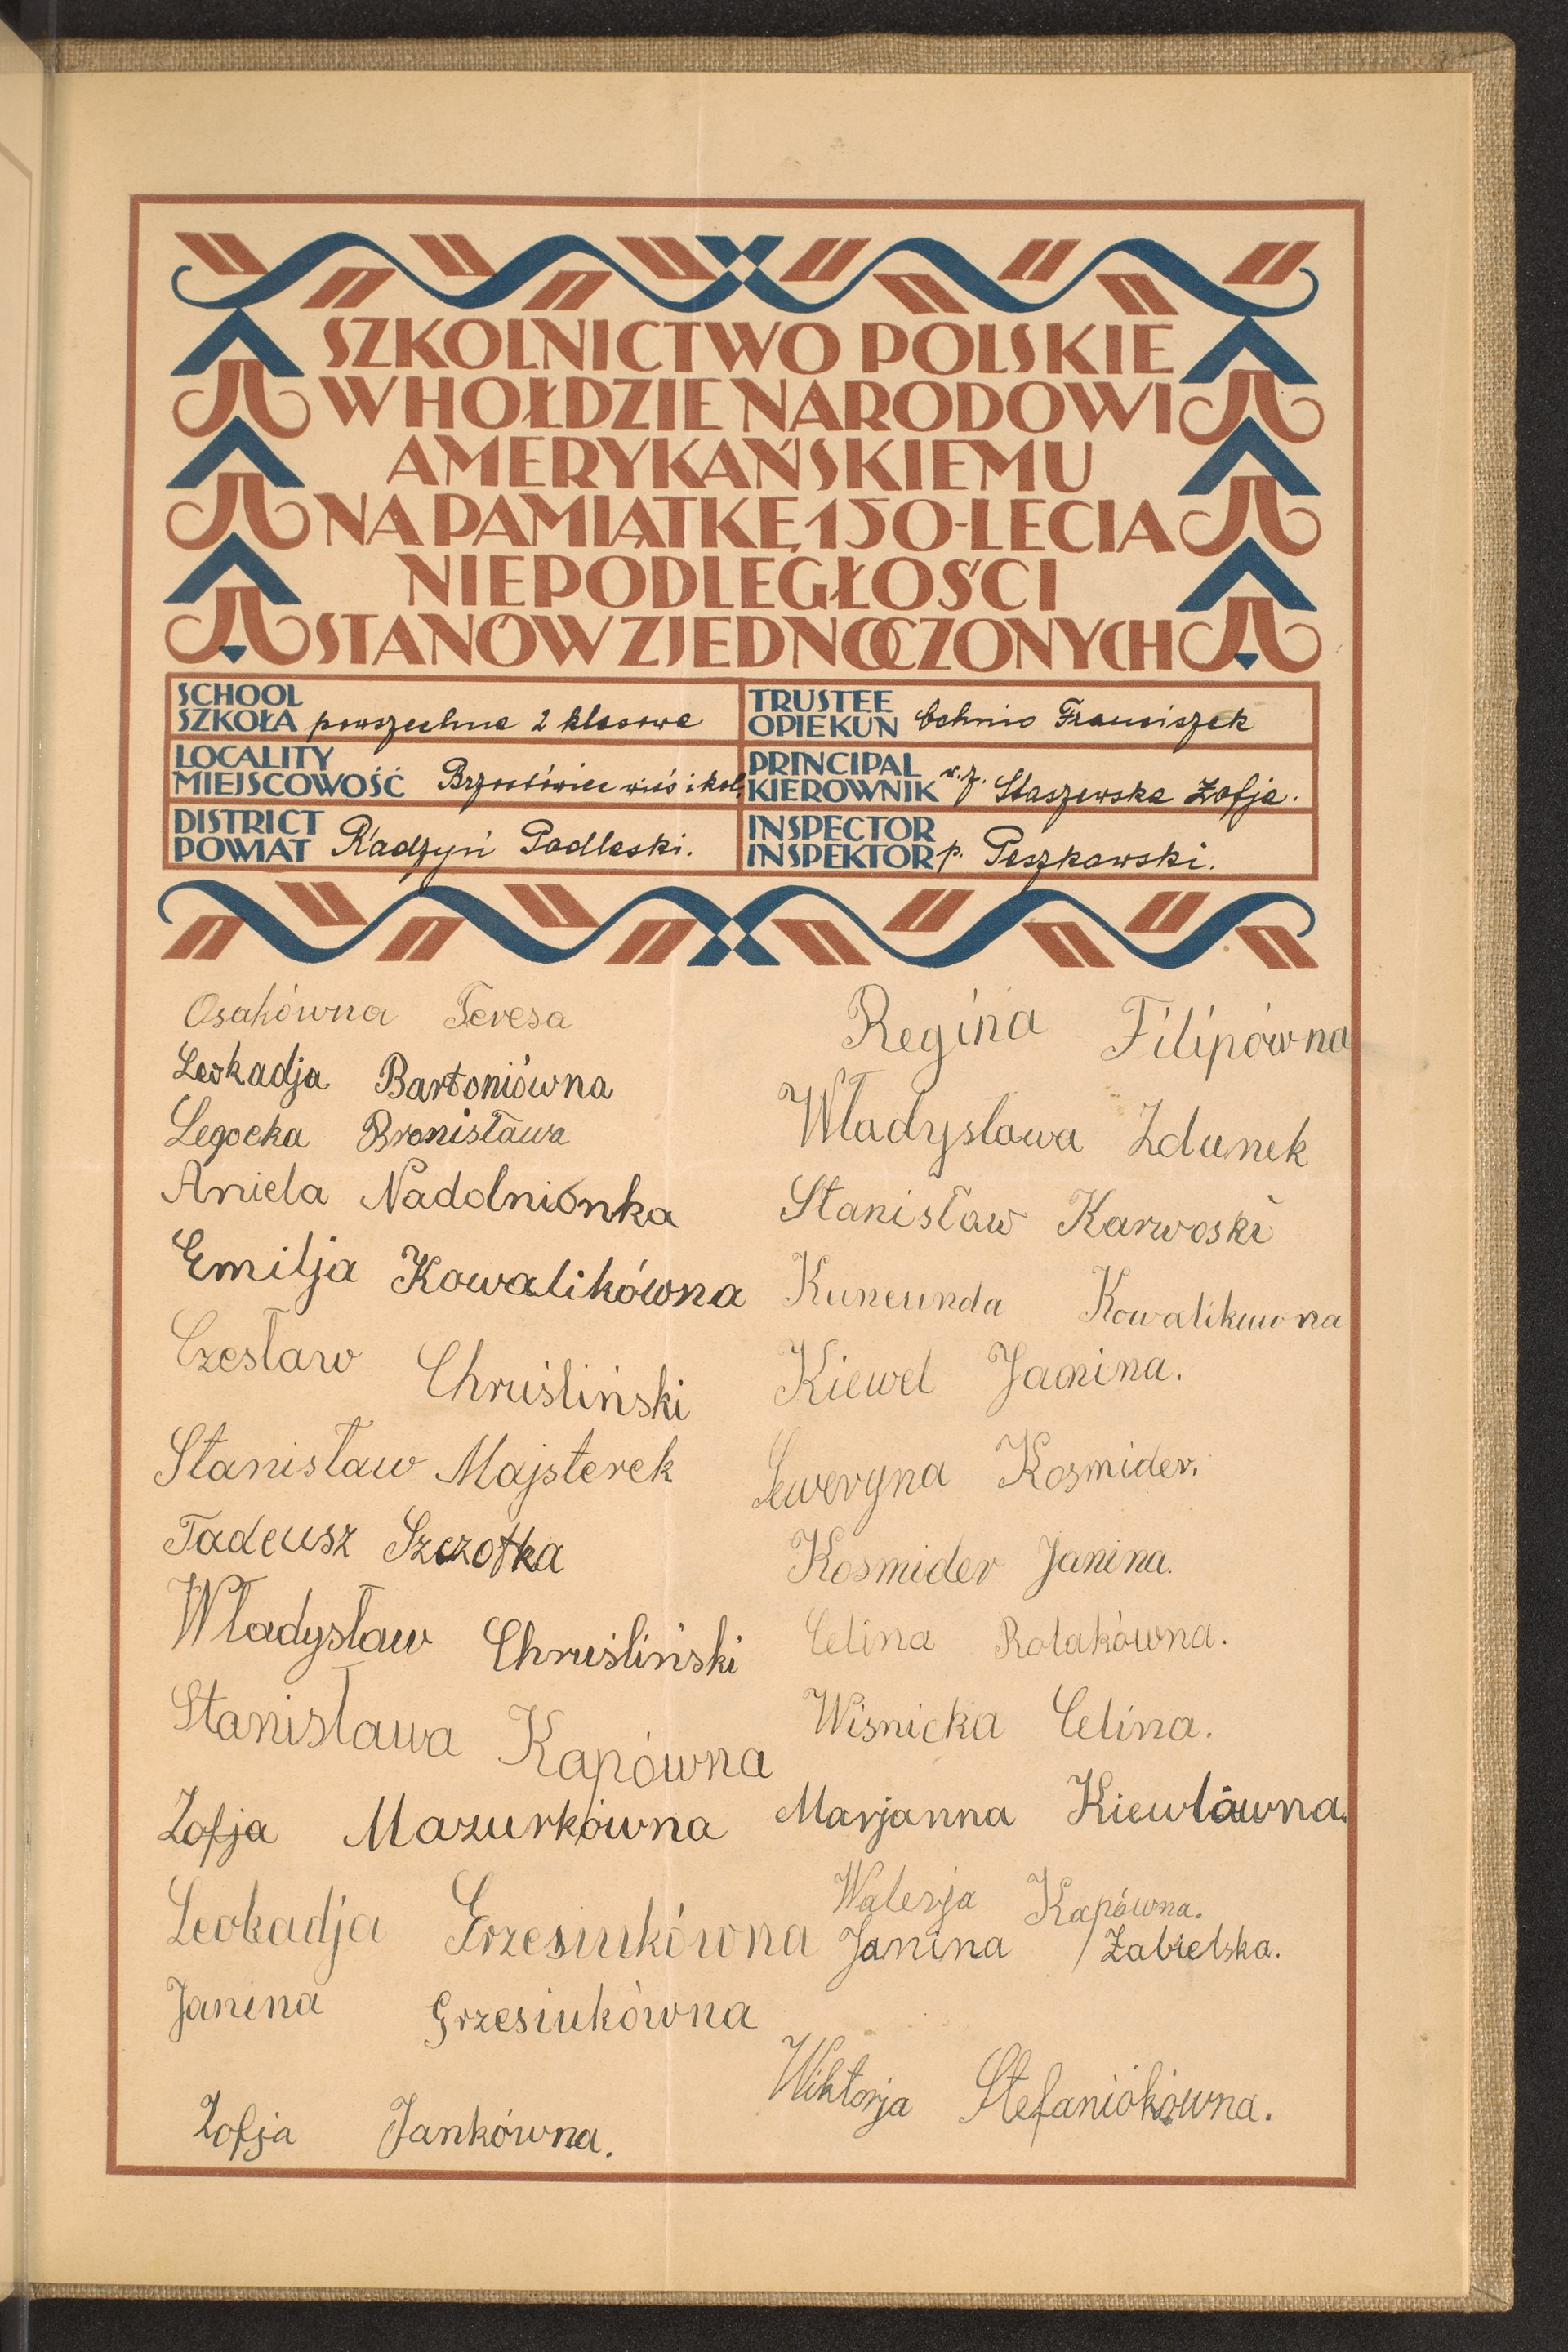 SZKOLNICTWO POLSKIE
W HOŁDZIE NARODOWI
AMERYKAŃSKIEMU
NA PAMIĄTKĘ 150-LECIA
NIEPODLEGŁOŚCI
STANÓW ZJEDNOCZONYCH
SCHOOL
SZKOŁA powszechna 2 klasowa
LOCALITY
MIEJSCOWOŚĆ Brzostówiec wieś i kol.
DISTRICT
POWIAT Radzyń Podlaski.
TRUSTEE
OPIEKUN Ochnio Franciszek
PRINCIPAL
KIEROWNIK w. z. Staszewska Zofja.
INSPECTOR
INSPEKTOR p. Peszkowski.
Osakówna Teresa
Leokadja Bartoniówna
Legocka Bronisława
Aniela Nadolniónka
Emilja Kowalikówna
Czesław Chruśliński
Stanisław Majsterek
Tadeusz Szczotka
Władysław Chruśliński
Stanisława Kapówna
Zofja Mazurkówna
Leokadja Grzesiukówna
Janina Grzesiukówna
Zofja Jankówna.
Regina Filipówna
Władysława Zdunek
Stanisław Karwoski
Kuneunda Kowalikuwna
Kiewel Janina.
Seweryna Kosmider.
Kosmider Janina.
Celina Rolakówna.
Wisnicka Celina.
Marjanna Kiewlówna.
Walerja Kapówna.
Janina Zabielska.
Wiktorja Stefaniókówna.